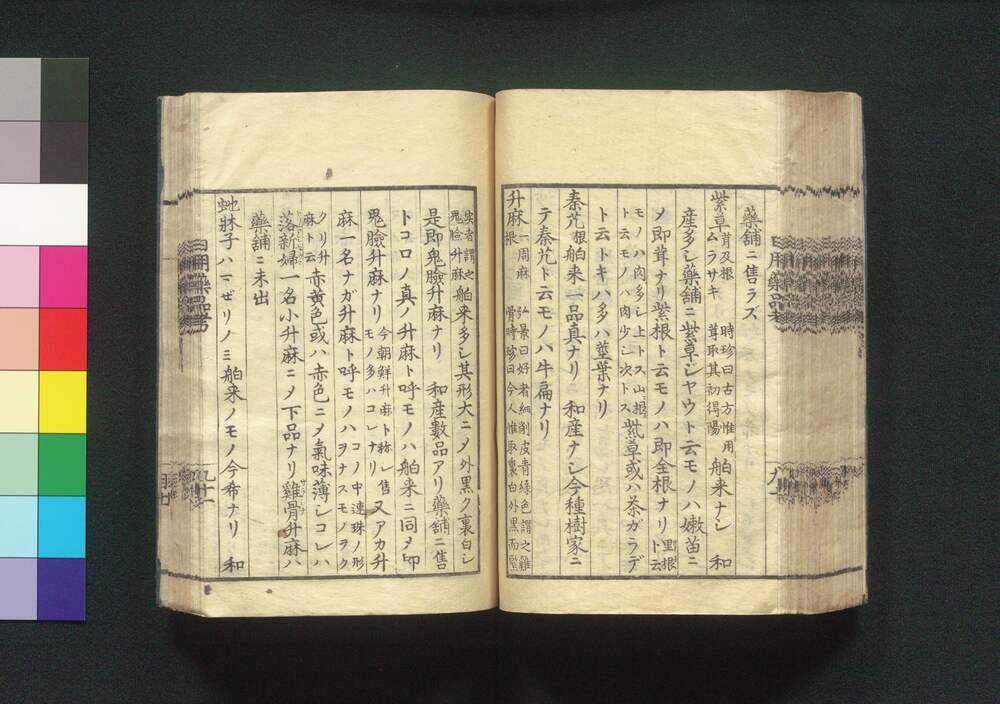 藥舖ニ售ラズ
紫草 茸及根 ムラサキ 時珍曰古方惟用茸取其初得陽 舶来ナシ 和
産多シ藥舖ニ紫草シヤウト云モノハ嫩苗ニ
〆即茸ナリ紫根ト云モノハ即全根ナリ ト云
モノハ肉多シ上トス山根ト云モノハ肉少シ次トス 紫草或ハ茶ガラデ
ト云トキハ多ハ莖葉ナリ
秦艽 根 舶来一品真ナリ 和産ナシ今種樹家ニ
テ秦艽ト云モノハ牛扁ナリ
升麻 一周麻 根 弘景曰好者細削皮青緑色謂之雞骨時珍曰今人惟取裏白外黒而緊
実者謂之鬼臉升麻 舶来多シ其形大ニ〆外黒ク裏白シ
是即鬼臉升麻ナリ 和産數品アリ藥舖ニ售
トコロノ真ノ升麻ト呼モノハ舶来ニ同〆即
鬼臉升麻ナリ 今朝鮮升麻ト称シ售モノ多ハコレナリ 又アカ升
麻一名ナガ升麻ト呼モノハ コノ中連珠ノ形ヲナスモノヲク
クリ升麻ト云 赤黄色或ハ赤色ニ〆氣味薄シコレハ
落新婦一名小升麻ニ〆下品ナリ雞骨升麻ハ
藥舖ニ未出
虵牀子ハマゼリノミ舶来ノモノ今希ナリ 和